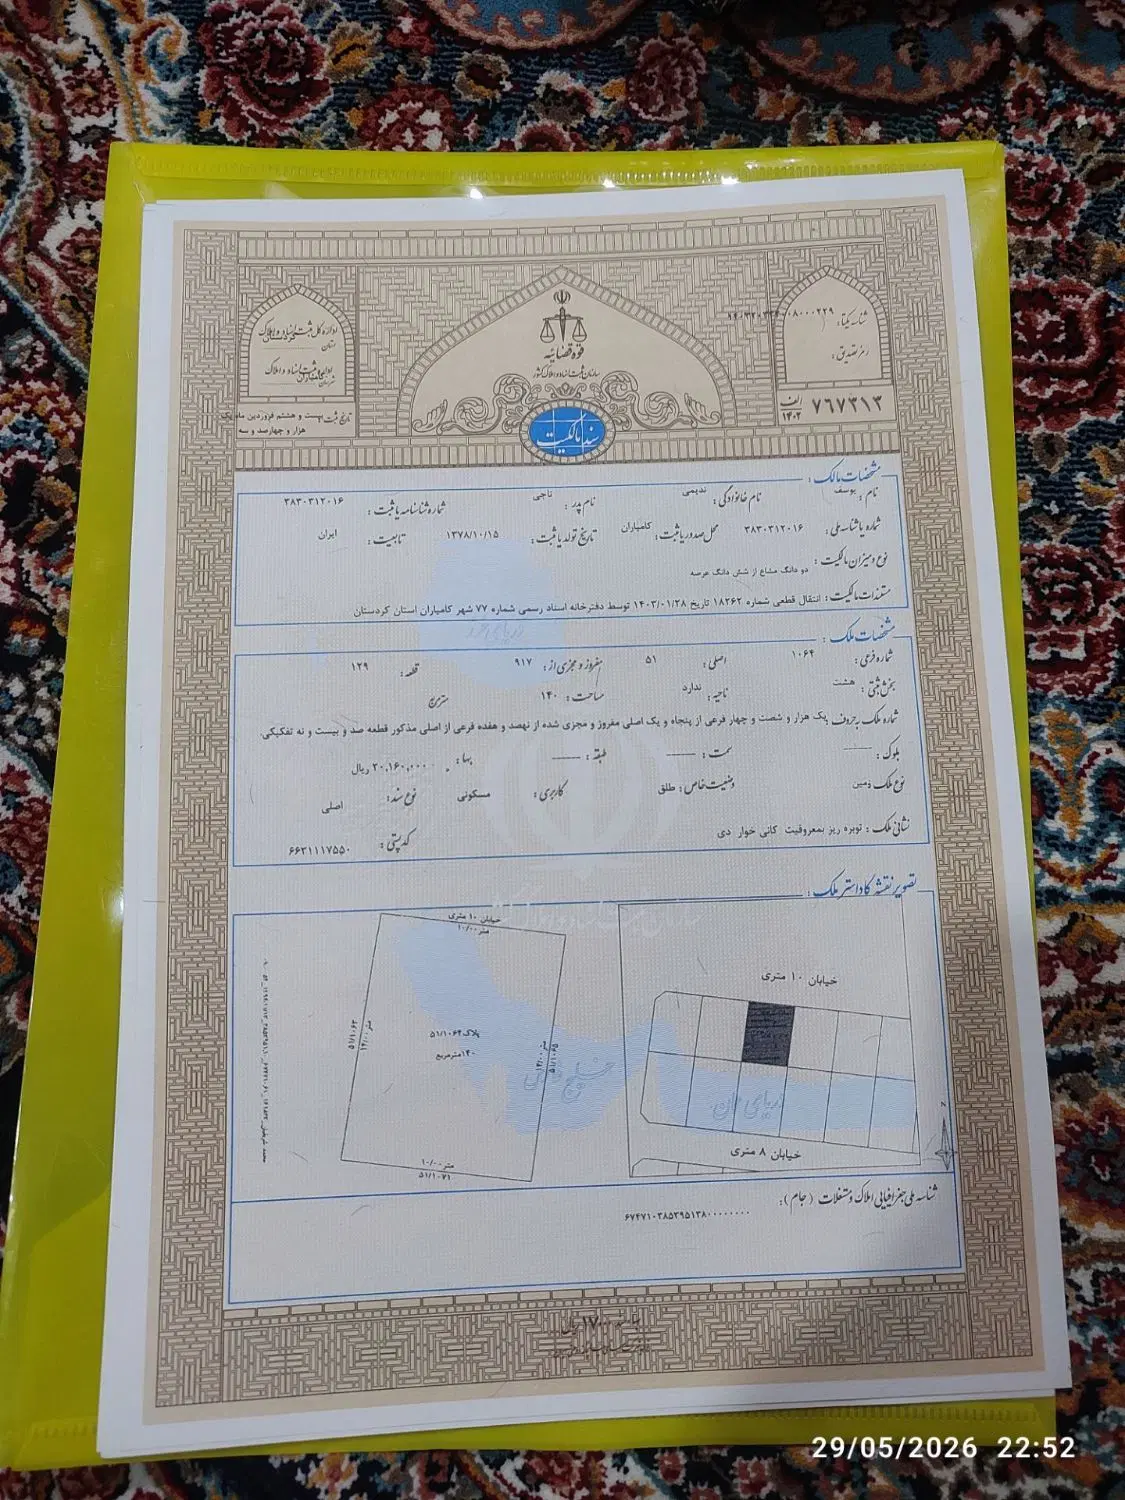 اداره کل ثبت اسناد و املاک
استان کردستان
شناسه یکتا:
رمز تصدیق:
قوه قضائیه
سازمان ثبت اسناد و املاک کشور
الف
۱۴۰۲
۷۶۷۳۱۳
تاریخ ثبت: بیست و هشتم فروردین ماه یک
هزار و چهارصد و سه
سند مالکیت
مشخصات مالک:
نام: یوسف نام خانوادگی: ندیمی نام پدر: ناجی شماره شناسنامه یا ثبت: ۳۸۳۰۳۱۲۰۱۶
شماره یا شناسه ملی: ۳۸۳۰۳۱۲۰۱۶ محل صدور یا ثبت: کامیاران تاریخ تولد یا ثبت: ۱۳۷۸/۱۰/۱۵ تابعیت: ایران
نوع و میزان مالکیت: دو دانگ مشاع از شش دانگ عرصه
مستندات مالکیت: انتقال قطعی شماره ۱۸۲۶۲ تاریخ ۱۴۰۳/۰۱/۲۸ توسط دفترخانه اسناد رسمی شماره ۷۷ شهر کامیاران استان کردستان
مشخصات ملک:
شماره فرعی: ۱۰۶۴ اصلی: ۵۱ مفروز و مجزی از: ۹۱۷ قطعه: ۱۲۹
بخش ثبتی: هشت ناحیه: ندارد مساحت: ۱۴۰ مترمربع
شماره ملک به حروف: یک هزار و شصت و چهار فرعی از پنجاه و یک اصلی مفروز و مجزی شده از نهصد و هفده فرعی از اصلی مذکور قطعه صد و بیست و نه تفکیکی.
بلوک: ——— سمت: ——— طبقه: ——— بها: ۲۰,۱۶۰,۰۰۰ ریال
نوع ملک: زمین وضعیت خاص: طلق کاربری: مسکونی نوع سند: اصلی
نشانی ملک: توبره ریز بمعروفیت کانی خوار دی کد پستی: ۶۶۳۱۱۱۷۵۵۰
تصویر نقشه کاداستر ملک:
خیابان ۱۰ متری
۱۰/۰۰ متر
خیابان ۱۰ متری
۵۱/۱۰۶۳
۱۴/۰۰ متر
پلاک ۵۱/۱۰۶۴
۱۴۰ مترمربع
۱۴/۰۰ متر
۵۱/۱۰۶۵
خلیج فارس
دریای عمان
۱۰/۰۰ متر
۵۱/۱۰۷۱
خیابان ۸ متری
شناسه ملی جغرافیایی املاک و مستغلات (جام):
۶۷۴۷۱۰۳۸۵۳۹۵۱۳۸۰۰۰۰۰۰۰۰
29/05/2026 22:52